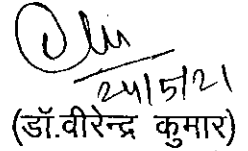 24/5/21
(डॉ.वीरेन्द्र कुमार)